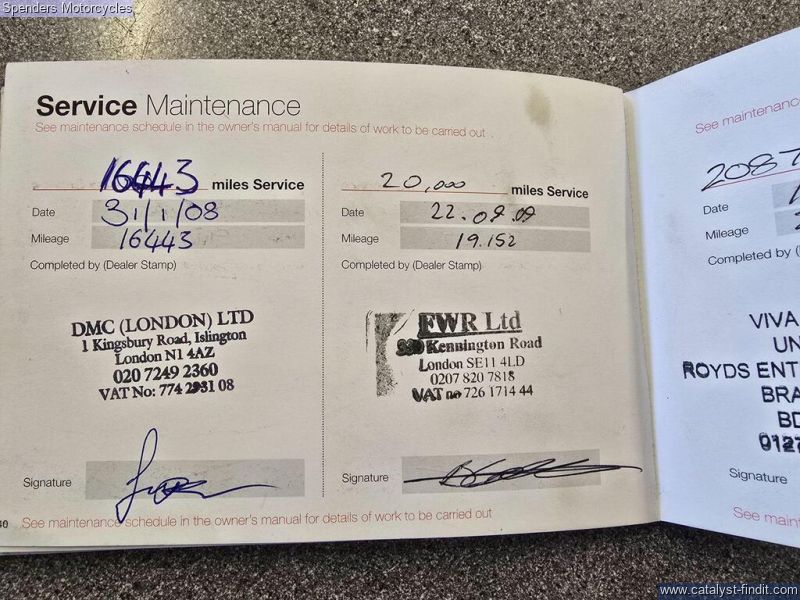 Spenders Motorcycles
Service Maintenance
See maintenance schedule in the owner's manual for details of work to be carried out
16443 miles Service
Date 31/1/08
Mileage 16443
Completed by (Dealer Stamp)
DMC (LONDON) LTD
1 Kingsbury Road, Islington
London N1 4AZ
020 7249 2360
VAT No: 774 2931 08
Signature
20,000 miles Service
Date 22.09.09
Mileage 19.152
Completed by (Dealer Stamp)
FWR Ltd
Kennington Road
London SE11 4LD
0207 820 7818
VAT no 726 1714 44
Signature
40 See maintenance schedule in the owner's manual for details of work to be carried out
See maintenance
2087
Date
Mileage
Completed by (
VIVA
UN
ROYDS ENT
BRA
BD
0127
Signature
See maint
www.catalyst-findit.com